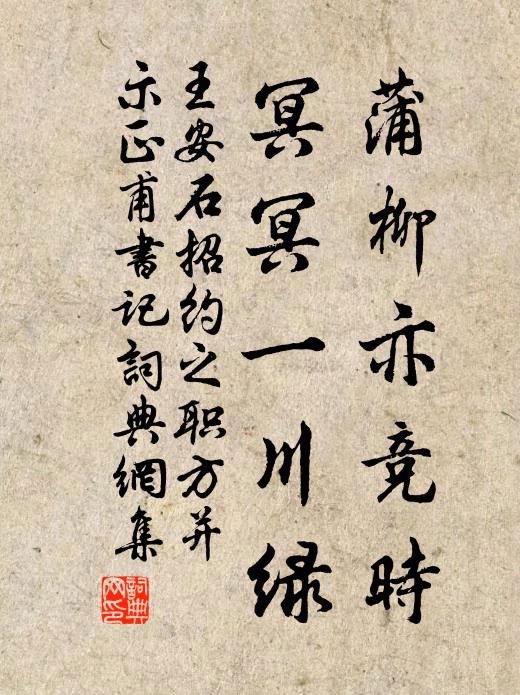 蒲柳亦竞時
冥冥一川绿
王安石招约之职方并
示正甫書記詞典網集